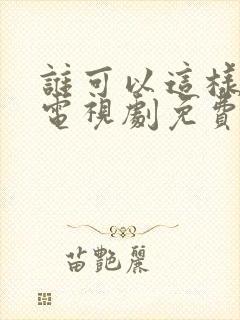 誰可以這樣
電視劇免費
苗艷麗